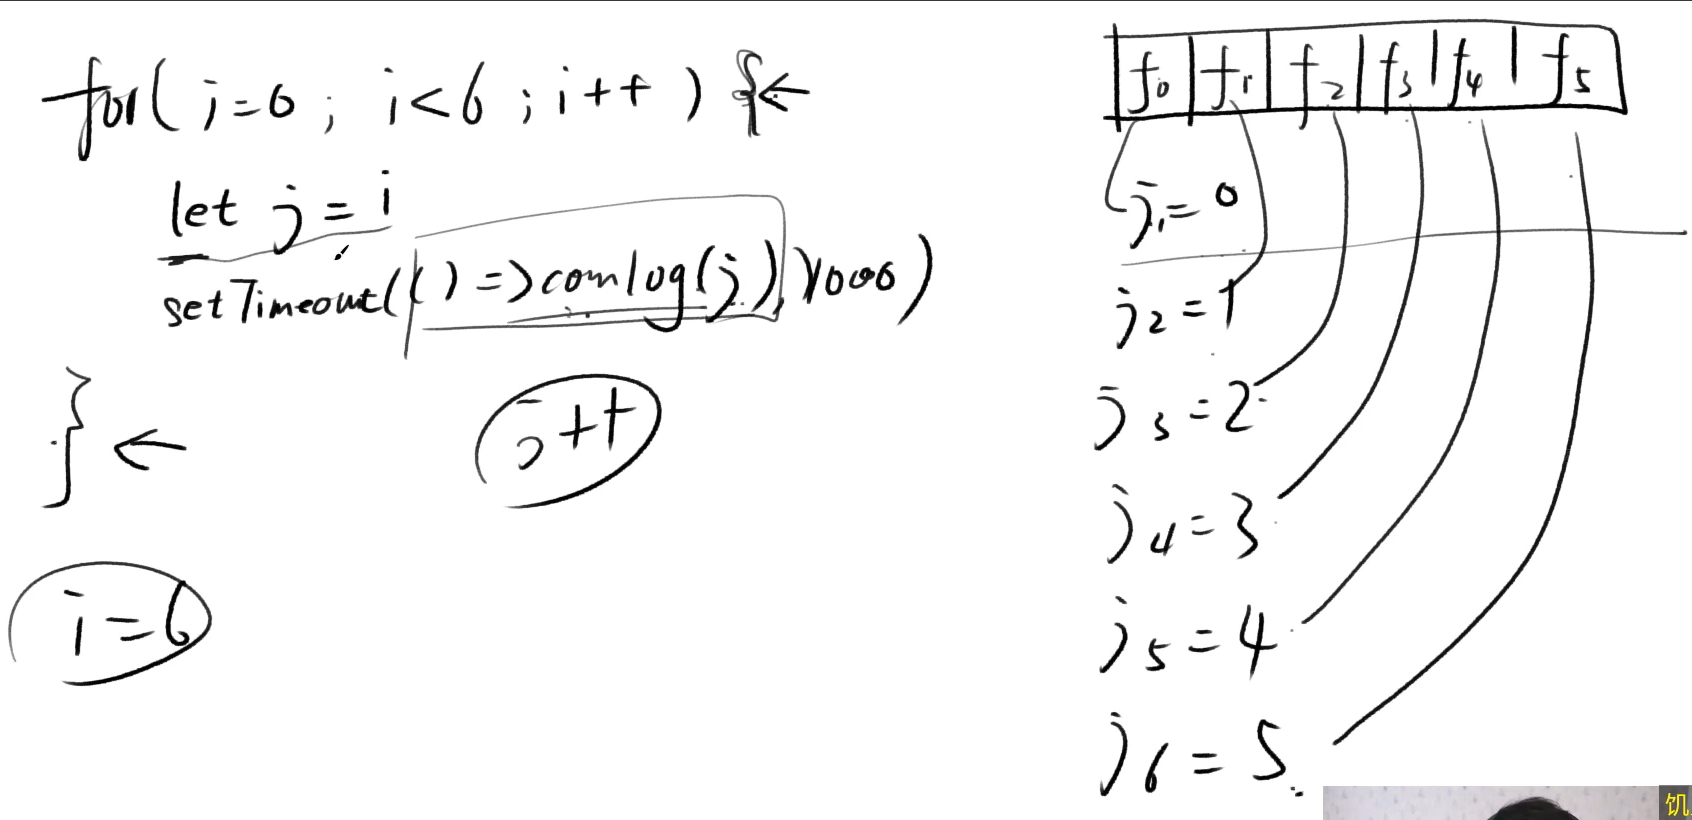 for( i=0 ; i<6 ; i++ ) {←
let j = i
setTimeout(() => com log(j), 1000)
} ←
j++
i=6
f0 f1 f2 f3 f4 f5
j1=0
j2=1
j3=2
j4=3
j5=4
j6=5
饥